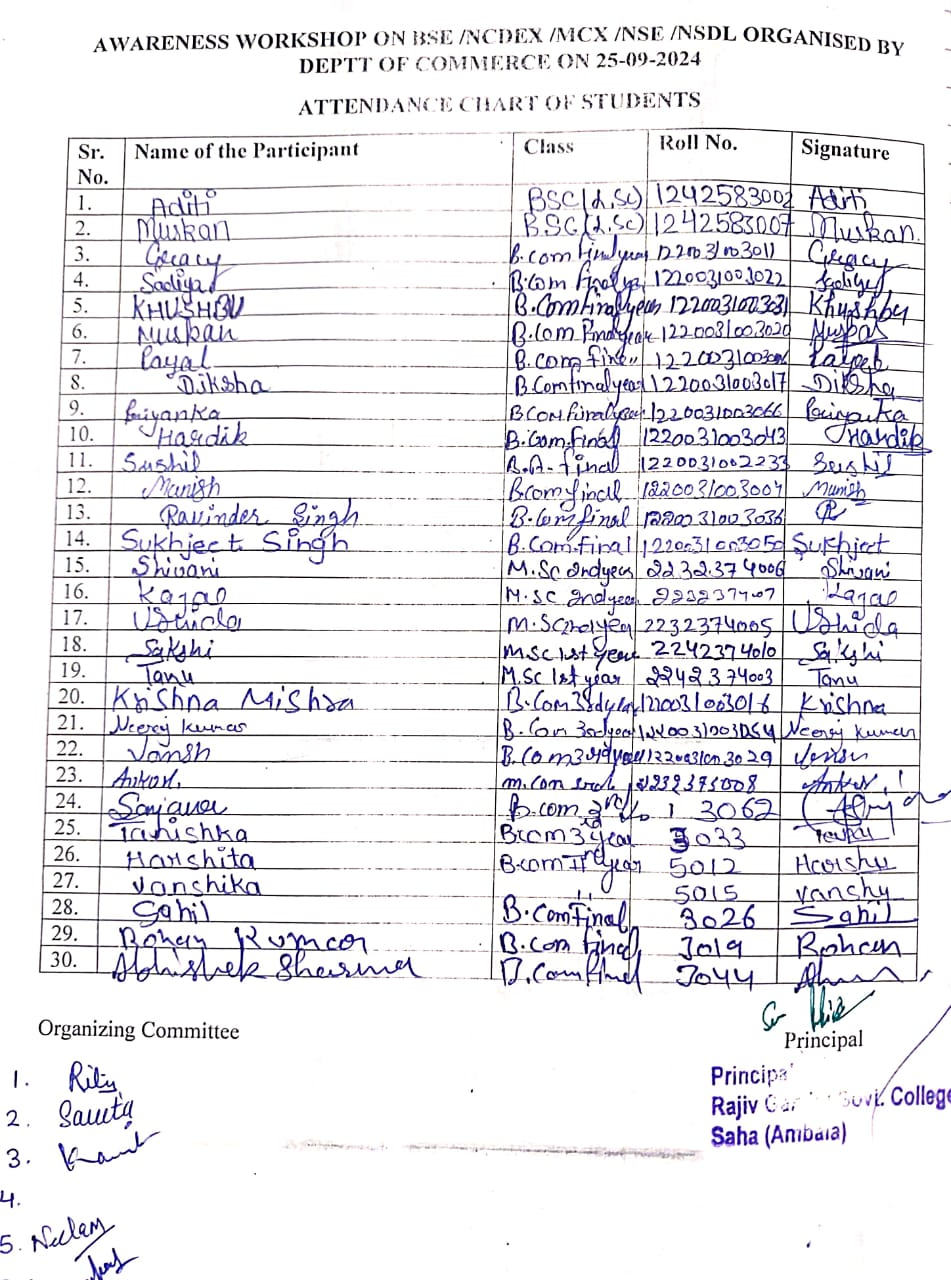 AWARENESS WORKSHOP ON BSE /NCDEX /MCX /NSE /NSDL ORGANISED BY
DEPTT OF COMMERCE ON 25-09-2024
ATTENDANCE CHART OF STUDENTS
Sr. No. Name of the Participant Class Roll No. Signature
1. Aditi BSC(L.Sc) 1242583002 Aditi
2. Muskan B.SC(L.Sc) 1242583007 Muskan.
3. Gracy B.com Final year 1220031003011 Gracy
4. Sadiya B.Com Final ye 1220031003022 Sadiya
5. KHUSHBU B.Com final year 1220031003031 Khushbu
6. Muskan B.Com Final year 1220031003020 Muskan
7. Payal B.com fine 1220031003006
8. Diksha B.Com final year 1220031003017 Diksha
9. Priyanka BCom final year 1220031003066 Priyanka
10. Hardik B.Com.final 1220031003043 Hardik
11. Sushil B.A-final 1220031002233 Sushil
12. Manish Bcom final 1220031003004 Manish
13. Ravinder Singh B.Com final 1220031003036
14. Sukhjeet Singh B.Com.Final 1220031003050 Sukhjeet
15. Shivani M.Sc 2nd year 2232374006 Shivani
16. Kajao M.SC 2nd year Kajao
17. M.Sc 2nd year 2232374005
18. Sakshi M.Sc 1st year 2242374010 Sakshi
19. Tanu M.Sc 1st year 2242374003 Tanu
20. Krishna Mishra B.Com 3rd year 1220031003016 Krishna
21. Neeraj Kumar B.Com 3rd year 1220031003054 Neeraj Kumar
22. Vansh B.Com 3rd year 1220031003029 Vansh
23. M.com
24. B.com 3062
25. Tanishka B.com 3rd year 3033
26. Harshita B.com IInd year 5012 Harshu
27. Vanshika 〃 5015 vanshu
28. Sahil B.Com Final 3026 Sahil
29. Rohan Kumar B.Com final 3019 Rohan
30. Abhishek Sharma B.Com final 3044
Organizing Committee
Principal
1. Ritu
2. Savita
3.
4.
5. Neelam
Principal
Rajiv Ga Govt. College
Saha (Ambala)